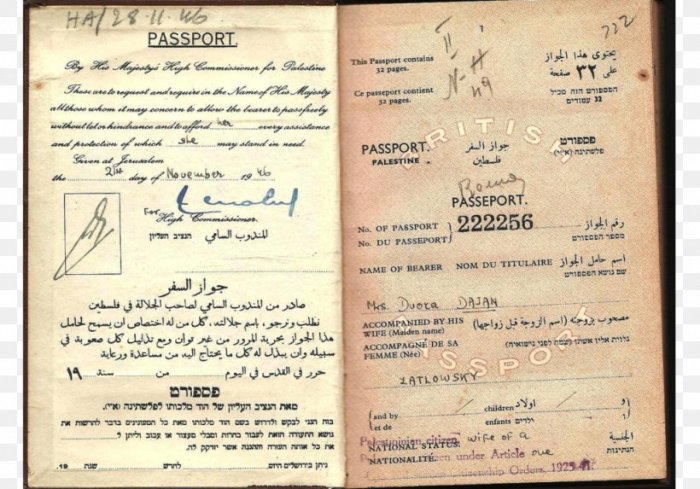 HA/28-11-46
PASSPORT.
By His Majesty's High Commissioner for Palestine
These are to request and require in the Name of His Majesty
all those whom it may concern to allow the bearer to pass freely
without let or hindrance and to afford her every assistance
and protection of which she may stand in need.
Given at Jerusalem
the 21st day of November 1946
For High Commissioner.
المندوب السامي הנציב העליון
جواز السفر
صادر من المندوب السامي لصاحب الجلالة في فلسطين
نطلب ونرجو، باسم جلالته، كل من له اختصاص ان يسمح لحامل
هذا الجواز بحرية المرور من غير توان وبع تذليل كل صعوبة في
سبيله وان يبذل له كل ما يحتاج اليه من مساعدة ورعاية
حرر في القدس في اليوم من سنة ١٩
פספורט
מאת הנציב העליון של הוד מלכותו לפלשתינה (א״י).
בזה הנני לבקש ולדרוש בשם הוד מלכותו מאת כל הממונים בדבר להרשות את
נושא התעודה הזאת לעבור בחרות ומבלי מעצור או עכוב וליתן לו
את כל אותה העזרה וההגנה אשר יזדקק לה.
ניתן בירושלים היום לחדש שנת 19
722
This Passport contains
32 pages.
Ce passeport contient
32 pages.
II
N-H
49
يحتوي هذا الجواز
على ٣٢ صفحة
הפספורט הזה מכיל
32 עמודים
BRITISH
PASSPORT.
PALESTINE
جواز السفر
فلسطين
פספורט
פלשתינה (א״י)
PASSEPORT.
No. OF PASSPORT
No. DU PASSEPORT
222256
رقم الجواز
מספר הפספורט
NAME OF BEARER NOM DU TITULAIRE اسم حامل الجواز
שם נושא הפספורט
Mrs. Dvora DAJAN
ACCOMPANIED BY HIS
WIFE (Maiden name)
مصحوب بزوجته (اسم الزوجة قبل زواجها)
ACCOMPAGNÉ DE SA
FEMME (Née)
נלוית אליו אשתו (שמה לפני נשואיה)
PASSPORT
ZATLOWSKY
and by
et de
children اولاد
enfants ילדים
و
Palestinian citizen wife of a
NATIONAL STATUS:
الجنسية
NATIONALITÉ.
citizen under Article one
הנתינות
Citizenship Orders, 1925-41.